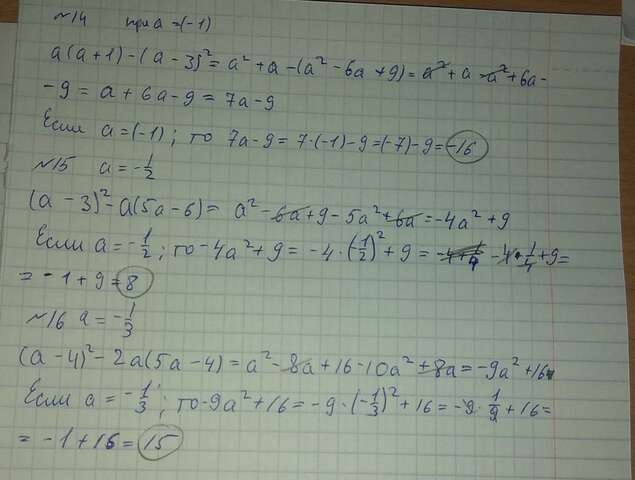 №14 при a=(-1)
a(a+1)-(a-3)²=a²+a-(a²-6a+9)=a²+a-a²+6a-
-9=a+6a-9=7a-9
Если a=(-1); то 7a-9=7·(-1)-9=(-7)-9=-16
№15 a=-1/2
(a-3)²-a(5a-6)= a²-6a+9-5a²+6a=-4a²+9
Если a=-1/2; то-4a²+9=-4·(-1/2)²+9=-4+1/4 -4·1/4+9=
=-1+9=8
№16 a=-1/3
(a-4)²-2a(5a-4)=a²-8a+16-10a²+8a=-9a²+16
Если a=-1/3; то-9a²+16=-9·(-1/3)²+16=-9·1/9+16=
=-1+16=15